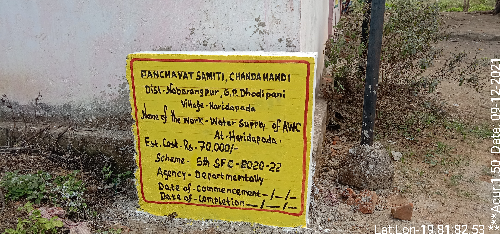 PANCHAYAT SAMITI, CHANDAHANDI
Dist.-Nabarangpur, G.P. Dhodipani
Village-Haridapada
Name of the Work - Water Supply of AWC
At. Haridapada.
Est. Cost Rs. 70,000/-
Scheme:- 5th SFC-2020-22
Agency - Departmentally
Date of commencement - / - / -
Date of completion - / - / -
Lat Lon-19.81,82.53
Date: 09-12-2021